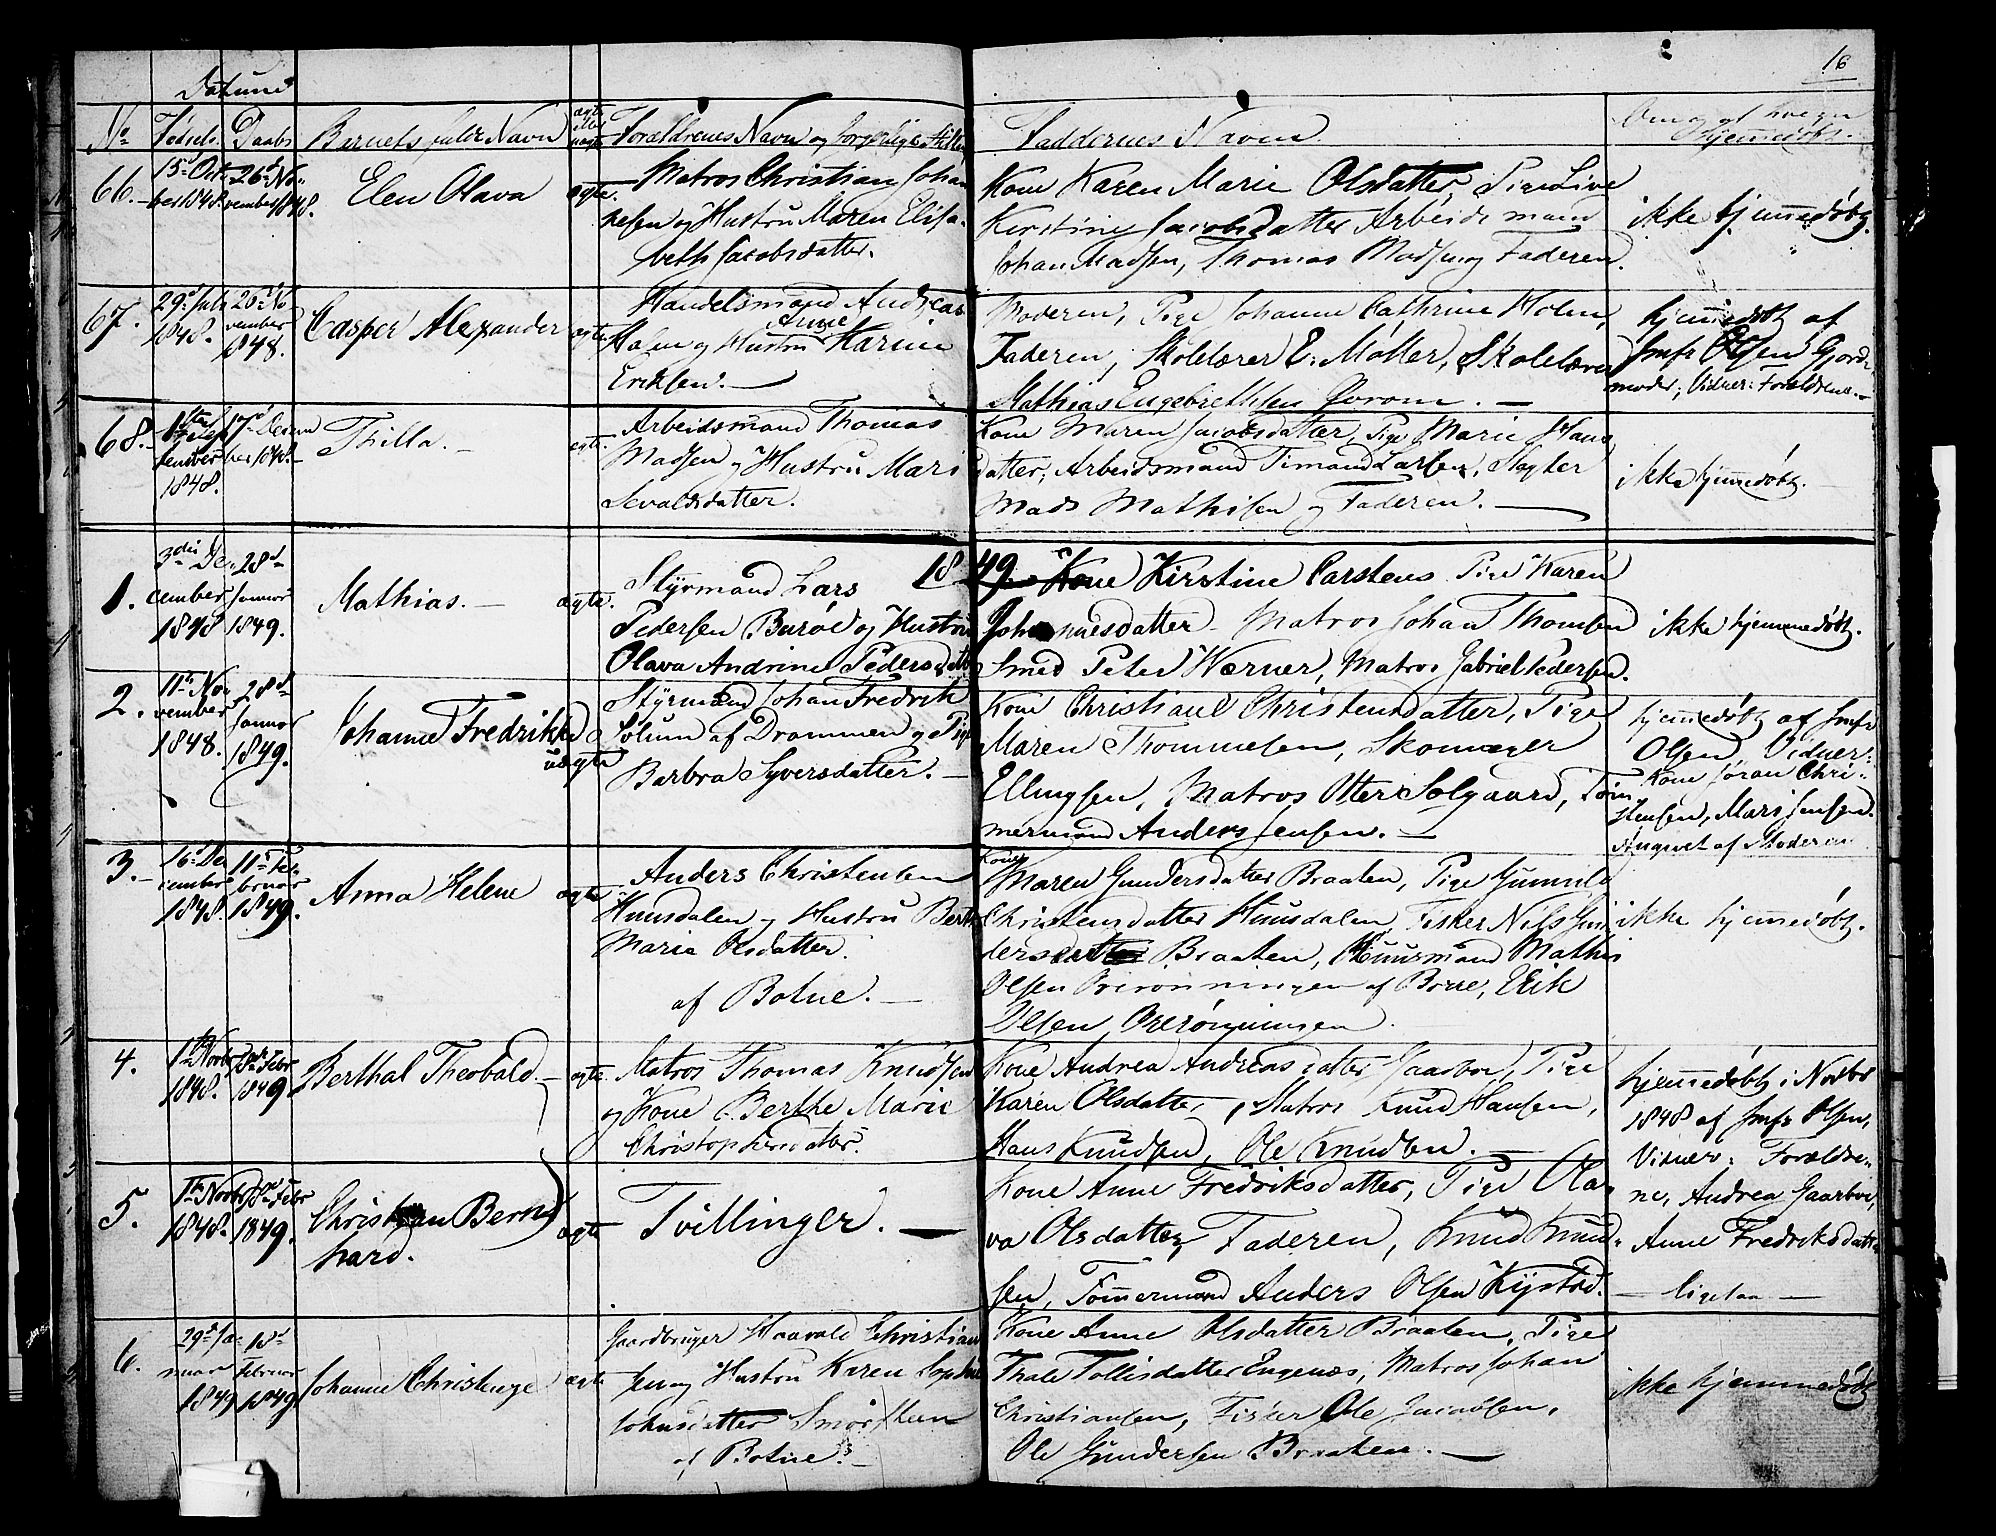 16
Datum
No Fødsels Daabs Barnets fulde Navn ægte eller uægte Forældrenes Navn og borgerlige Stilling Faddernes Navn Om og af hvem hjemmedøbt.
66. 15d Octbr 1848. 26d November 1848. Elen Olava ægte.
Matros Christian Johan
nesen og Hustru Maren Elisa-
beth Jacobsdatter.
Kone Karen Marie Olsdatter, Pige Live
Kirstine Jacobsdatter Arbeidsmand
Johan Madsen, Thomas Madsen og Faderen.
ikke hjemmedøbt.
67. 29d Juli 1848. 26d November 1848. Casper Alexander ægte
Handelsmand Andreas
Holm og Hustru Anne Karine
Eriksen.
Moderen, Pige Johanne Cathrine Holm,
Faderen, Skolelærer E: Møller, Skolelærer
Mathias Engebrethsen
hjemmedøbt af
Jmfr Olsen Gjord-
moder; Vidner: Forældrene.
68. 1848. 17d December 1848. Thilla. ægte.
Arbeidsmand Thomas
Madsen og Hustru Mari
Sevaldsdatter.
Kone Maren Jacobsdatter, Pige Marie Hans
datter, Arbeidsmand Simand Larsen, Slagter
Mads Mathisen og Faderen.
ikke hjemmedøbt.
1849.
1. 3die December 1848 28d Januar 1849. Mathias. ægte.
Styrmand Lars
Pedersen Buröe og Hustru
Olava Andrine Pedersdatter
Kone Kirstine Carstens Pige Karen
Johannesdatter Matros Johan Thomsen
Smed Peter Werner, Matros Gabriel Pedersen.
ikke hjemmedøbt.
2. 11te November 1848. 28d Januar 1849. Johanne Fredrikke uægte
Styrmand Johan Fredrik
Solum af Drammen og Pige
Barbra Syversdatter.
Kone Christiane Christensdatter, Pige
Maren Thommesen, Skomager
Ellingsen, Matros Otter Solgaard, Töm-
mermand Anders Jensen.
hjemmedøbt af Jmfr
Olsen Vidner:
Kone Jøran Chri-
stensen, Mari Jensen.
Angivet af Moderen
3. 16d December 1848. 11te Februar 1849. Anna Helene ægte
Anders Christensen
Huusdalen og Hustru Berthe
Marie Olsdatter.
af Botne.
Kone
Maren Gundersdatter Braaten, Pige Gunnild
Christensdatter Huusdalen, Fisker Nils Gun
ders Braaten, Huusmand Mathis
Olsen af Borre, Erik
Olsen
ikke hjemmedøbt.
4. 1te Novbr 1848. Febr 1849 Berthal Theobald. ægte.
Matros Thomas Knudsen
og Kone Berthe Marie
Christophersdatter.
Kone Andrea Andreasdatter Gaarboe, Pige
Karen Olsdatter, Matros Knud Hansen,
Hans Knudsen, Ole Knudsen.
hjemmedøbt i Novbr
1848 af Jmfr Olsen,
Vidner: Forældre-
ne, Andrea Gaarboe,
Anne Fredriksdatter
5. 1te Novbr 1848. Febr 1849. Christian Bern-
hard. ægte
Tvillinger.
Kone Anne Fredriksdatter, Pige Ola-
va Olsdatter, Faderen, Knud Knud-
sen, Tömmermand Anders Olsen Kystad.
ligesaa
6. 29d Januar 1849 18d Februar 1849 Johanne ægte
Gaardbruger Haavald Christian
sen og Hustru Karen Sophie
Johnsdatter Smörsteen
af Botne.
Kone Anne Olsdatter Braaten, Pige
Thale Tollisdatter Engenæs, Matros Johan
Christiansen, Fisker Ole Jacobsen,
Ole Gundersen Braaten.
ikke hjemmedøbt